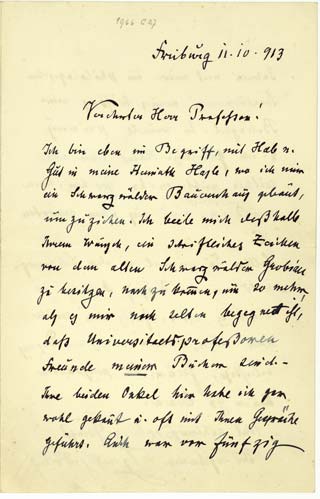 1966 C 27
Freiburg 11.10.913
Verehrter Herr Professor!
Ich bin eben im Begriff, mit Hab u.
Gut in meine Heimath Hasle, wo ich mir
ein Schwarzwälder Bauernhaus gebaut,
umzuziehen. Ich beeile mich deßhalb
Ihrem Wunsch, ein schriftliches Zeichen
von dem alten Schwarzwälder Grobian
zu besitzen, nachzukommen, um so mehr,
als es mir noch selten begegnet ist,
daß Universitaetsprofessoren
Freunde meiner Bücher sind.-
Ihre beiden Onkel hier habe ich gar
wohl gekannt u. oft mit Ihnen Gespräche
geführt. Auch war vor fünfzig